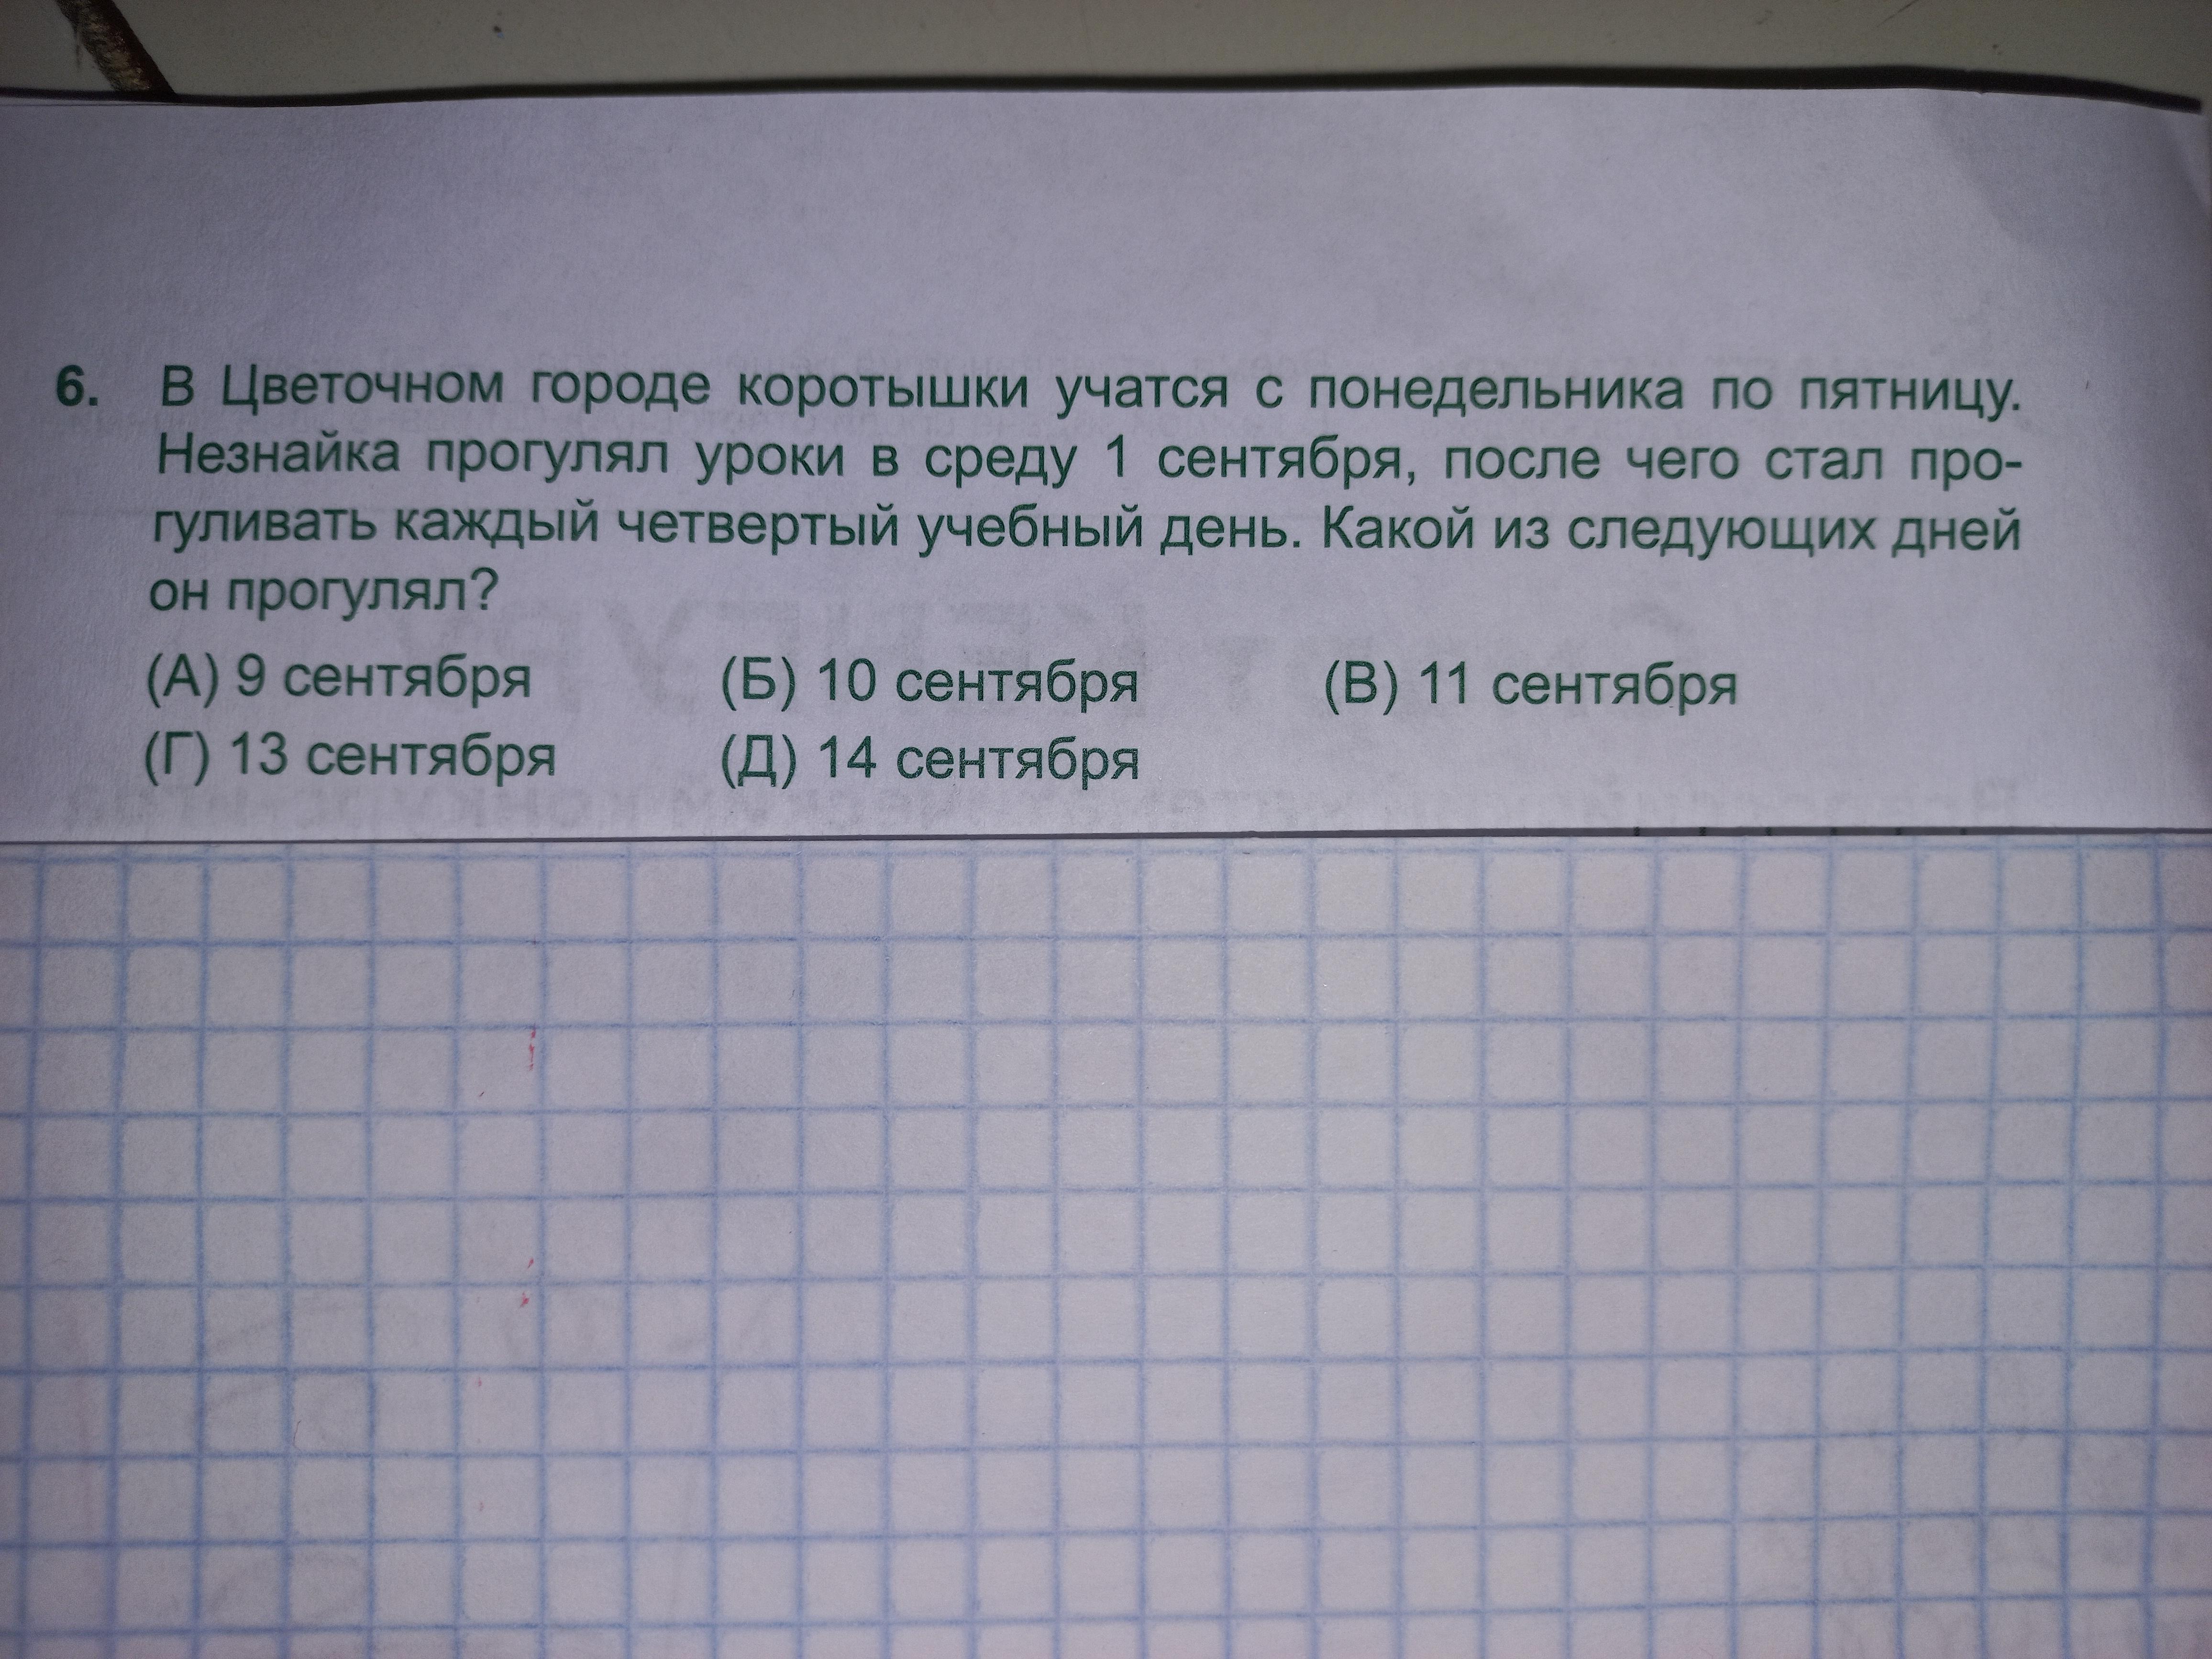 6. В Цветочном городе коротышки учатся с понедельника по пятницу.
Незнайка прогулял уроки в среду 1 сентября, после чего стал про-
гуливать каждый четвертый учебный день. Какой из следующих дней
он прогулял?
(А) 9 сентября (Б) 10 сентября (В) 11 сентября
(Г) 13 сентября (Д) 14 сентября